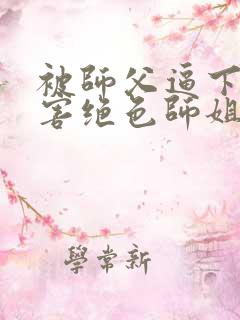 被師父逼下
害绝色師姐
學常新